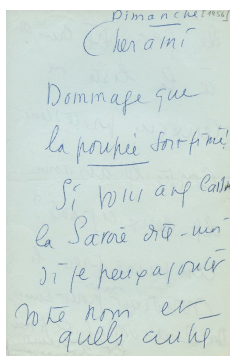 Dimanche [1956]
Cher ami
Dommage que
la poupée soit
Si vous avez
la Savoie dite-moi
si je peux ajouter
votre nom et
quels autre